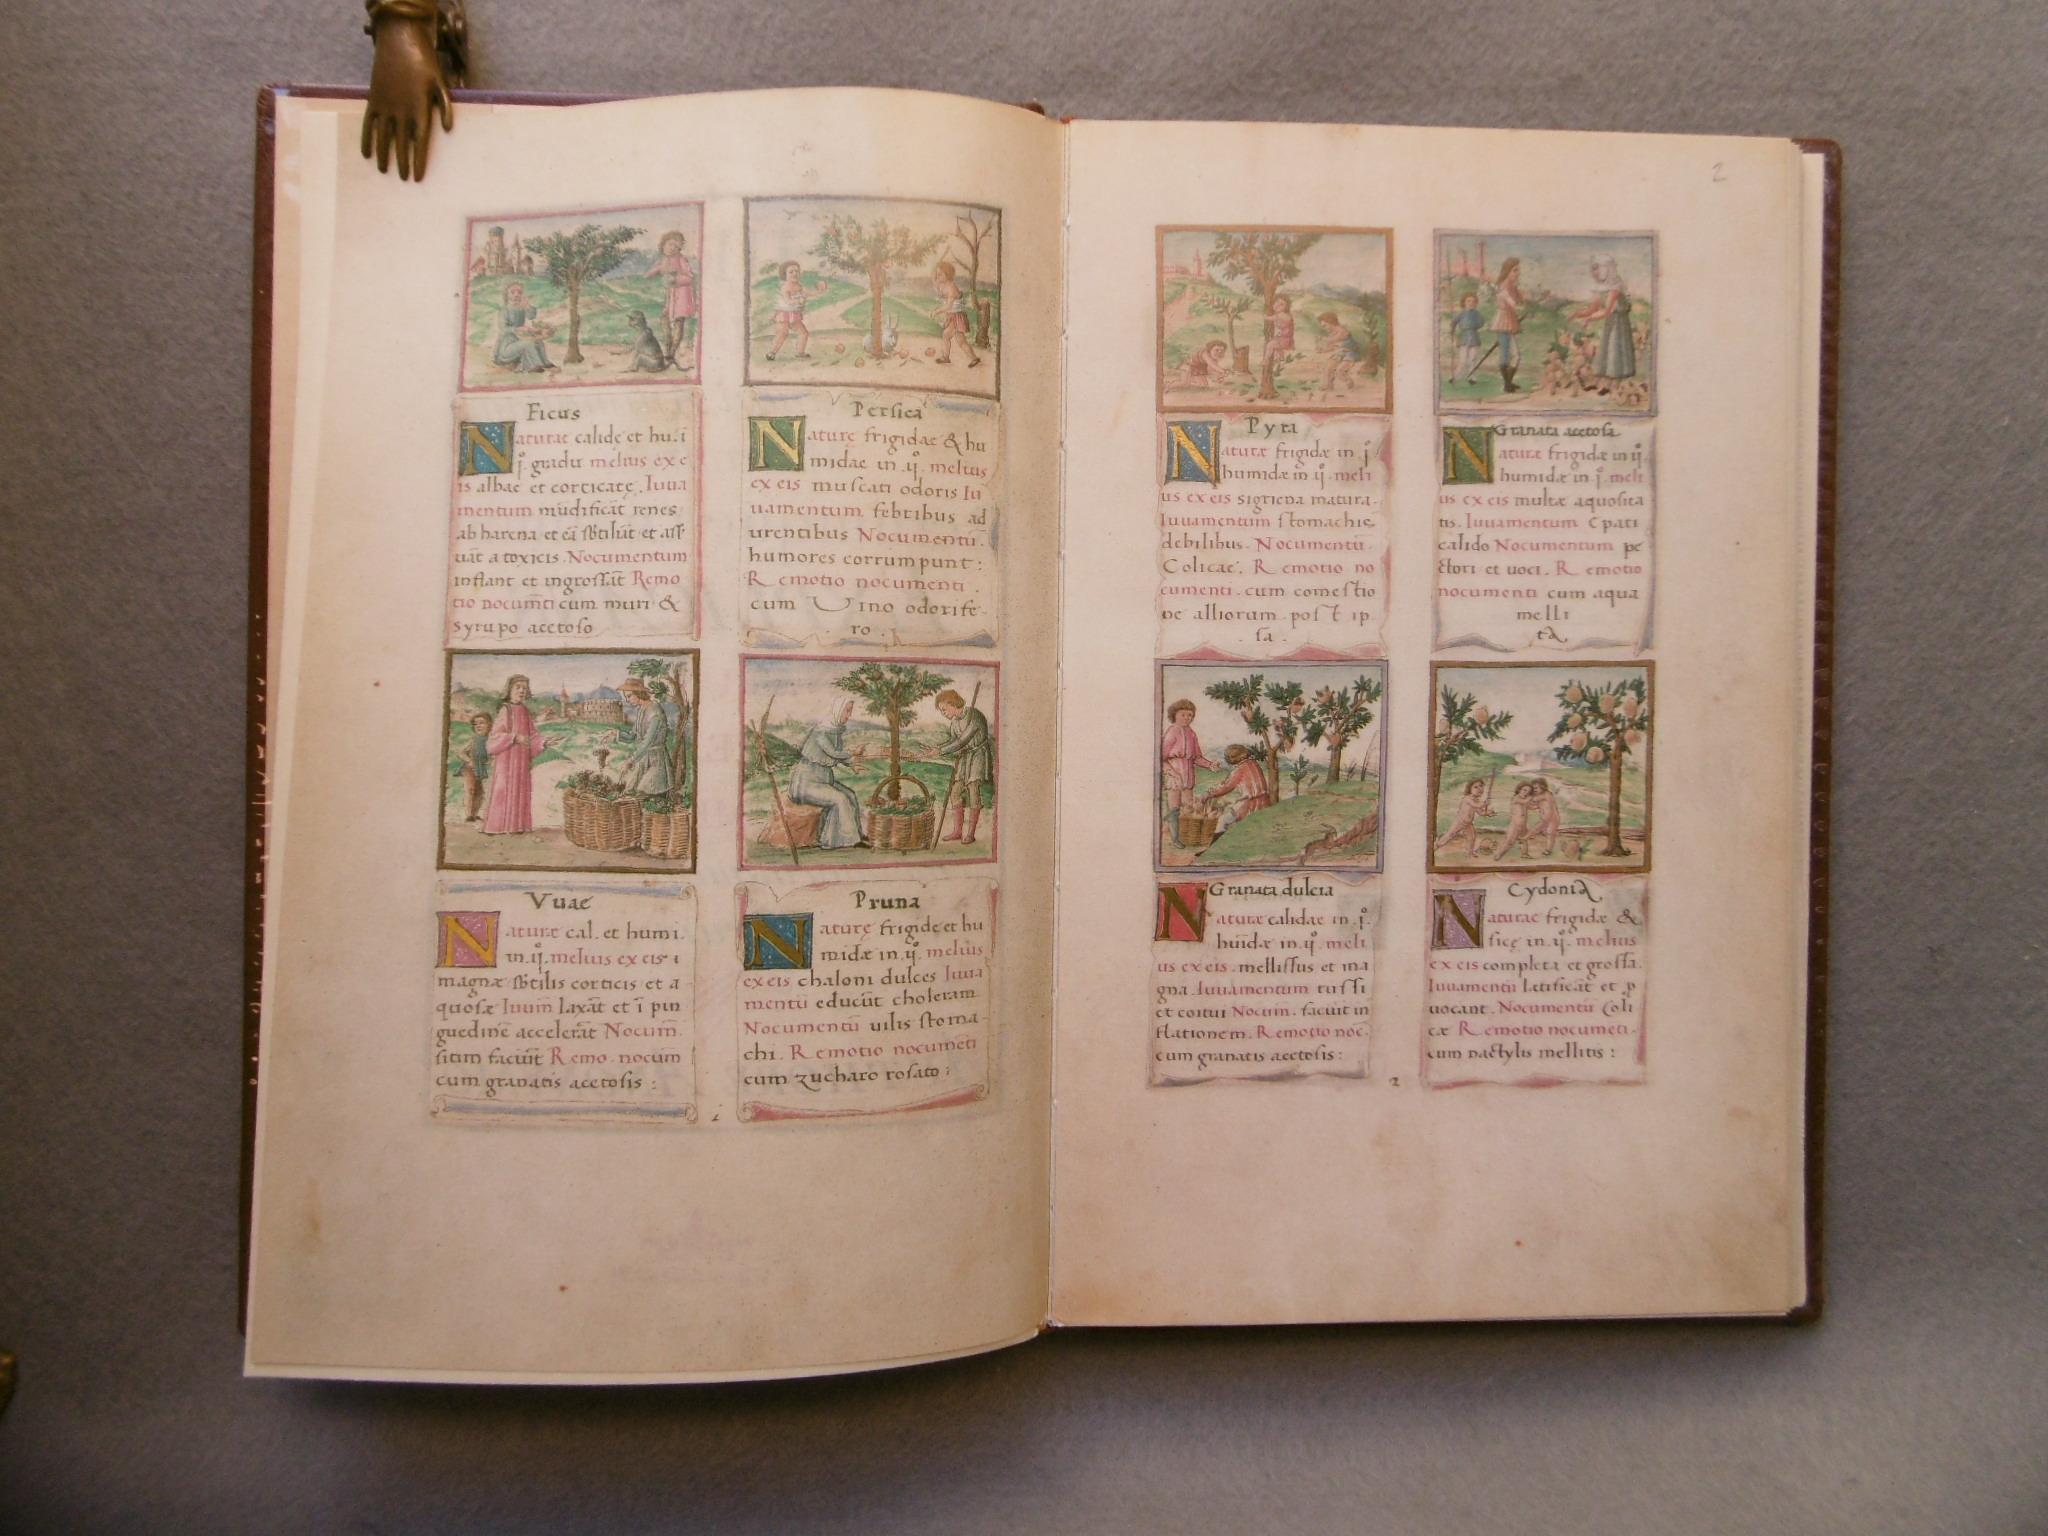 Ficus
Naturae calidę et hu. ī
j.º gradu melius ex e
is albae et corticatę. Iuua
mentum mūdificāt renes
ab harena et eā sb̄tiliāt et ass
uāt a toxicis. Nocumentum
inflant et ingrossāt Remo
tio nocum̄ti cum muri &
syrupo acetoso
Persica
Naturę frigidae & hu
midae in .ij.º melius
ex eis muscati odoris Iu
uamentum febribus ad
urentibus Nocumentū.
humores corrumpunt:
Remotio nocumenti.
cum Vino odorife-
ro.
Vuae
Naturæ cal. et humi.
in .ij.º melius ex eis
magnæ sb̄tilis corticis et a
quosæ Iuum̄ laxāt et ī pin
guedinē accelerāt Nocum̄.
sitim faciūt Remo. nocum̄
cum granatis acetosis:
Pruna
Naturę frigidę et hu
midæ in .ij.º melius
ex eis chaloni dulces Iuua
mentū educūt choleram
Nocumentū uilis stoma-
chi. Remotio nocumēti
cum zucharo rosato:
i
2
Pyra
Naturæ frigidæ in j.º
humidæ in .ij.º meli
us ex eis sigriena matura.
Iuuamentum stomachis
debilibus. Nocumentū.
Colicae. Remotio no
cumenti. cum comestio
ne alliorum post ip
.sa.
Granata acetosa
Naturæ frigidæ in ij.º
humidæ in .j.º meli
us ex eis multæ aquosita
tis. Iuuamentum Epati
calido Nocumentum pe
ctori et uoci. Remotio
nocumenti cum aqua
melli
ta.
Granata dulcia
Naturæ calidae in .j.º
humidæ in .ij.º meli
us ex eis. mellissus et ma
gna. Iuuamentum tussi
et coitui Nocum̄. faciūt in
flationem. Remotio noc̄.
cum granatis acetosis:
Cydonia
Naturae frigidæ &
siccę in .ij.º melius
ex eis completa et grossa.
Iuuamentū lętificāt et ꝓ
uocant. Nocumentū Coli
cæ Remotio nocumēti.
cum dactylis mellitis:
2